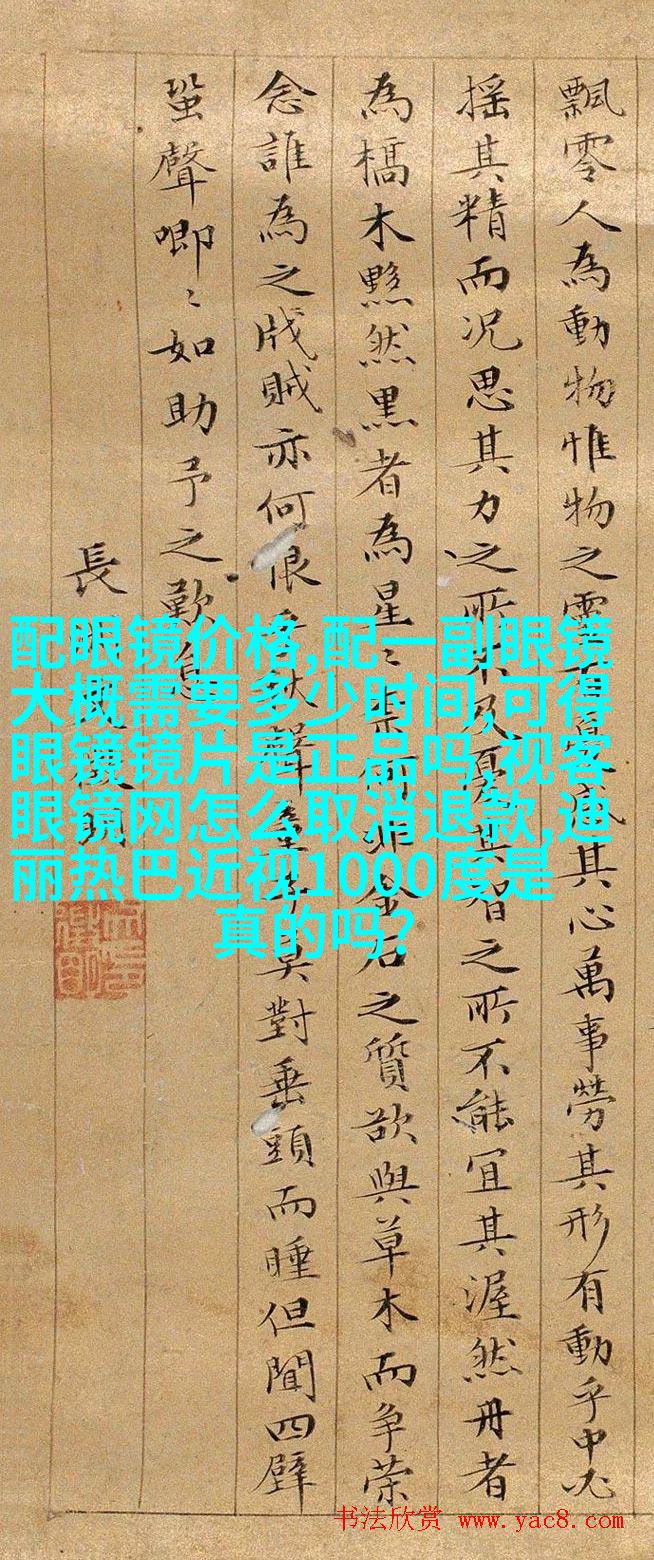 飄零人為動物惟物之靈其心萬事勞其形有動乎中必
搖其精而况思其力之所不及憂其智之所不能宜其渥然丹者
為槁木黟然黒者為星〻奈何非金石之質欲與草木而争榮
念誰為之戕賊亦何恨乎秋聲童子莫對垂頭而睡但聞四壁
蛩聲唧〻如助予之歎息
長
配眼镜价格,配一副眼镜
大概需要多少时间,可得
眼镜镜片是正品吗,视客
眼镜网怎么取消退款,迪
丽热巴近视1000度是
真的吗?
书法欣赏 www.yac8.com